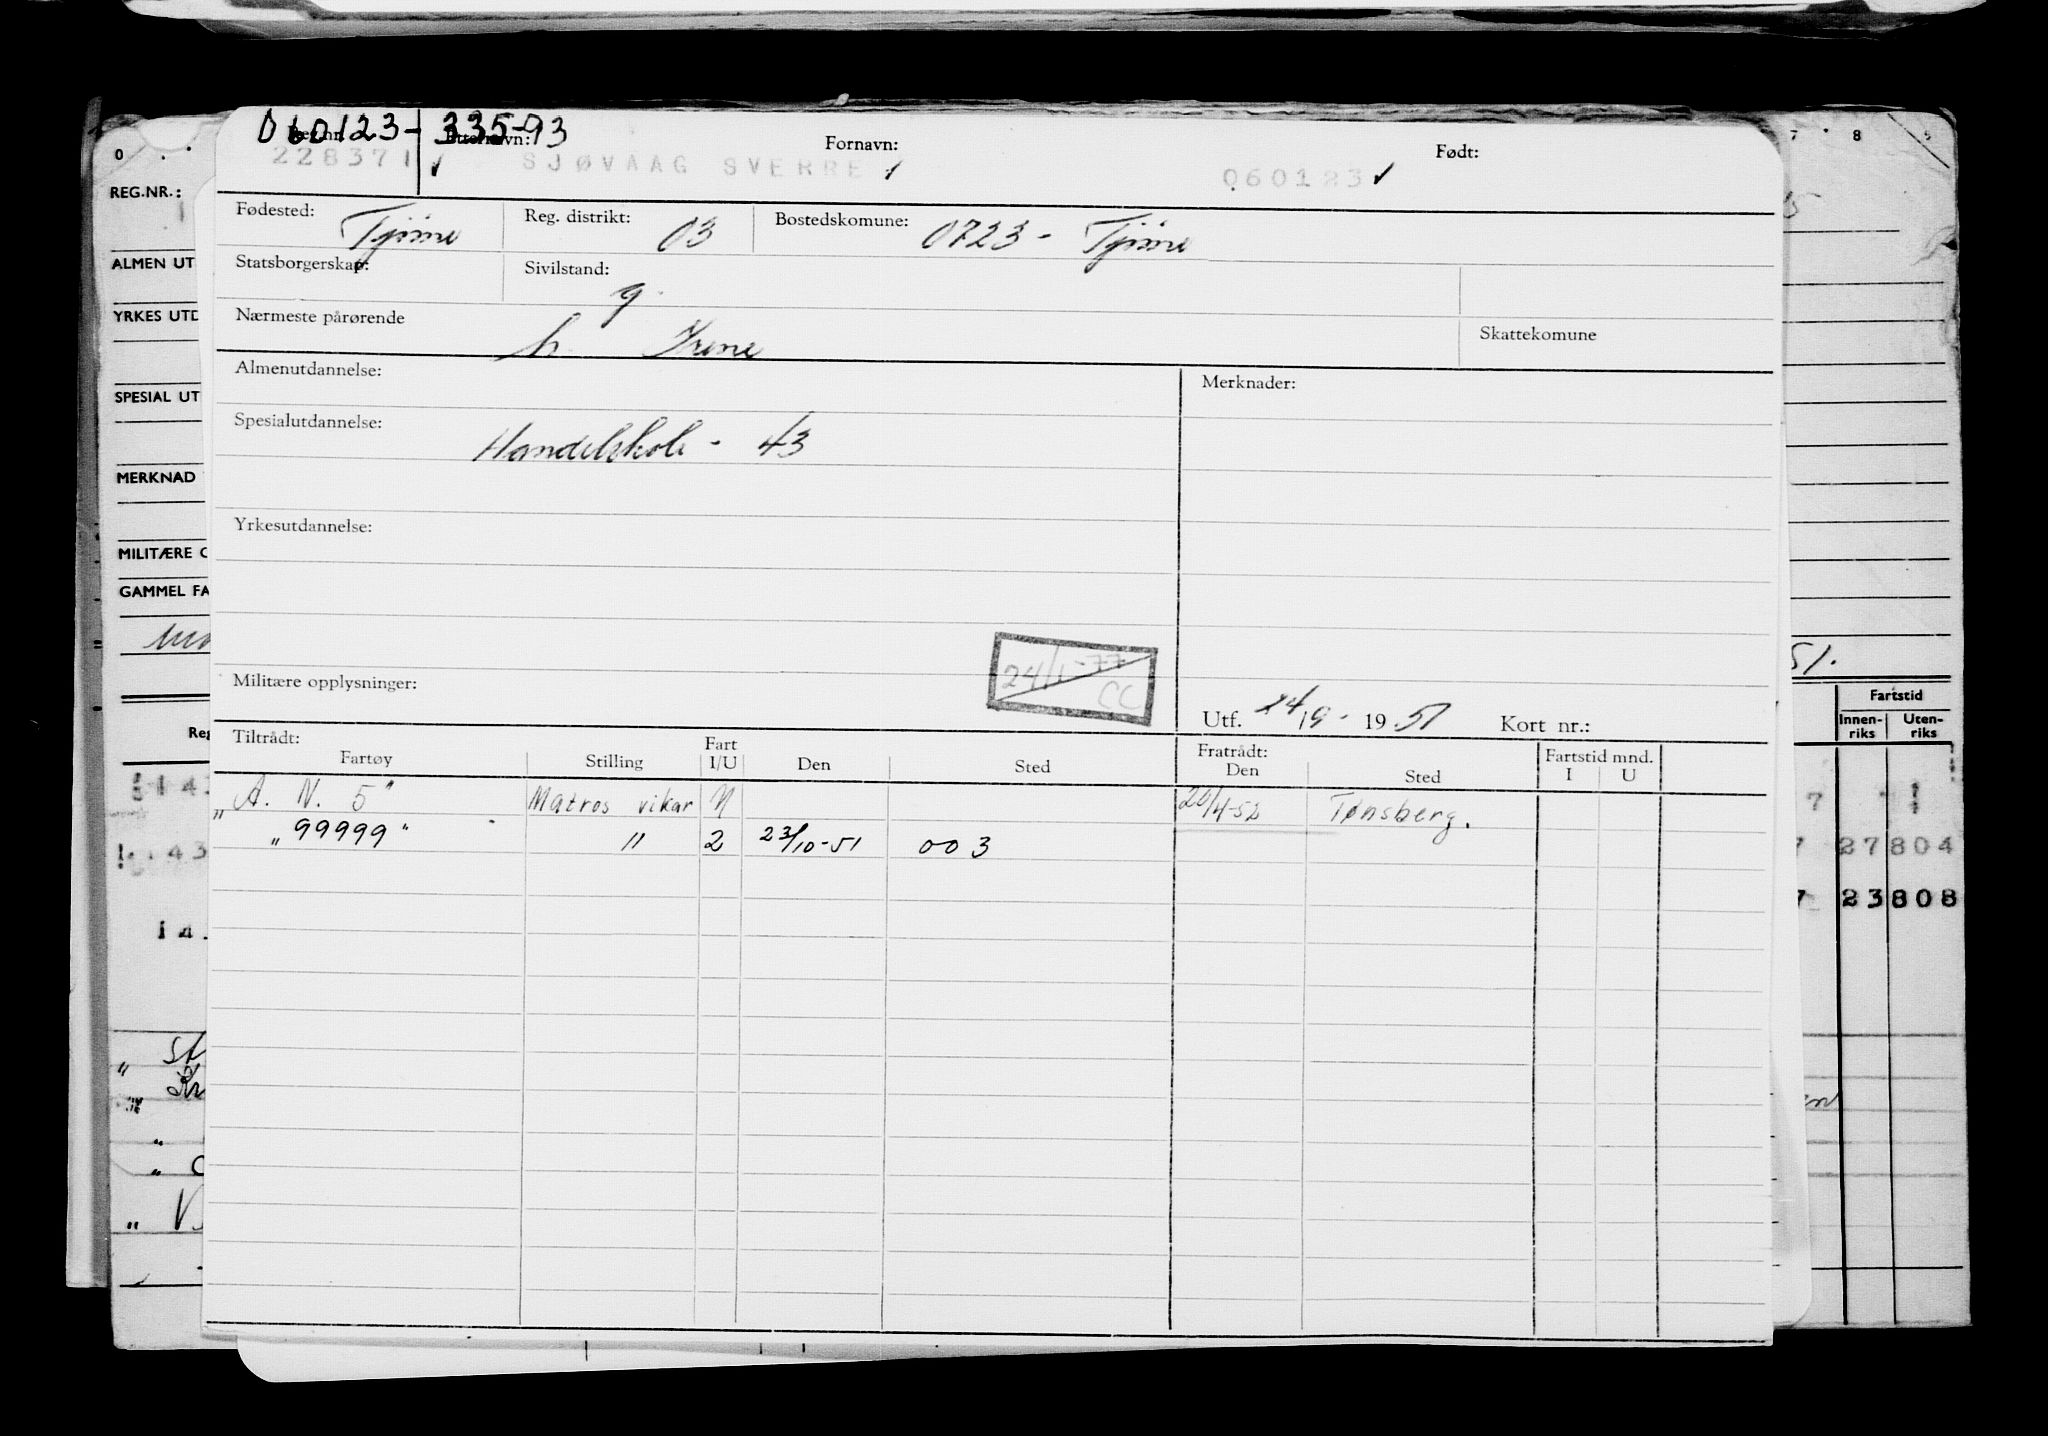 060123-335-93
Reg.nr. Etternavn: Fornavn: Født:
228371 SJØVAAG SVERRE 060123
Fødested: Tjöme Reg. distrikt: 03 Bostedskomune: 0723 - Tjöme
Statsborgerskap: Sivilstand: g.
Nærmeste pårørende h. Irene Skattekomune
Almenutdannelse: Merknader:
Spesialutdannelse: Handelskole - 43
Yrkesutdannelse:
24/1-77
CC
Militære opplysninger:
Utf. 24/9 - 1951 Kort nr.:
Tiltrådt: Fratrådt: Fartstid mnd.
Fartøy Stilling Fart I/U Den Sted Den Sted I U
"A. N. 5" Matros vikar N 20/4-52 Tønsberg.
"99999" " 2 23/10-51 003
0
REG.NR.:
ALMEN UT
YRKES UTD
SPESIAL UT
MERKNAD
MILITÆRE O
GAMMEL FA
Reg
7 8 9
51.
Fartstid
Innen-riks Uten-riks
27 804
23 808